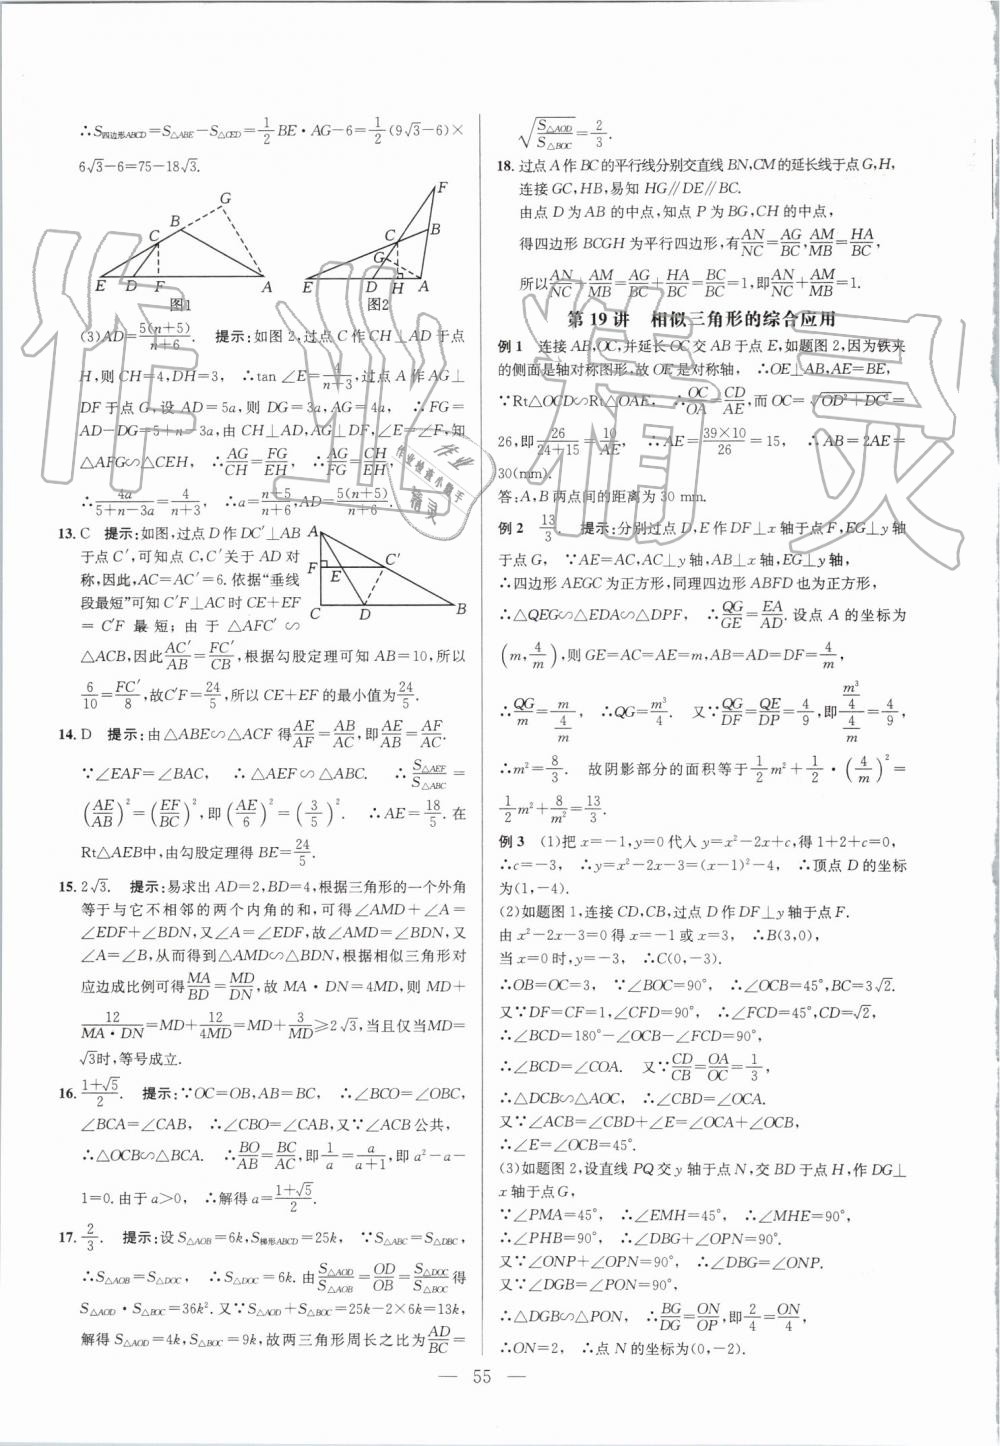 ∴S四边形ABCD=S△ABE-S△CED=1/2 BE·AG-6=1/2(9√3-6)×
6√3-6=75-18√3.
图1 图2
(3)AD=5(n+5)/(n+6). 提示:如图2,过点C作CH⊥AD于点
H,则CH=4,DH=3,∴tan∠E=4/(n+3),过点A作AG⊥
DF于点G,设AD=5a,则DG=3a,AG=4a, ∴FG=
DF-DG=5+n-3a,由CH⊥AD,AG⊥DF,∠E=∠F,知
△AFG∽△CEH, ∴AG/CH=FG/EH, ∴AG/FG=CH/EH,
∴4a/(5+n-3a)=4/(n+3), ∴a=(n+5)/(n+6),AD=5(n+5)/(n+6).
13. C 提示:如图,过点D作DC′⊥AB
于点C′,可知点C,C′关于AD对
称,因此,AC=AC′=6.依据“垂线
段最短”可知C′F⊥AC时CE+EF
=C′F最短;由于△AFC′∽
△ACB,因此AC′/AB=FC′/CB,根据勾股定理可知AB=10,所以
6/10=FC′/8,故C′F=24/5,所以CE+EF的最小值为24/5.
14. D 提示:由△ABE∽△ACF得AE/AF=AB/AC,即AE/AB=AF/AC.
∵∠EAF=∠BAC, ∴△AEF∽△ABC. ∴S△AEF/S△ABC=
(AE/AB)²=(EF/BC)²,即(AE/6)²=(3/5)². ∴AE=18/5.在
Rt△AEB中,由勾股定理得BE=24/5.
15. 2√3. 提示:易求出AD=2,BD=4,根据三角形的一个外角
等于与它不相邻的两个内角的和,可得∠AMD+∠A=
∠EDF+∠BDN,又∠A=∠EDF,故∠AMD=∠BDN,又
∠A=∠B,从而得到△AMD∽△BDN,根据相似三角形对
应边成比例可得MA/BD=MD/DN,故MA·DN=4MD,则MD+
12/(MA·DN)=MD+12/4MD=MD+3/MD≥2√3,当且仅当MD=
√3时,等号成立.
16. (1+√5)/2. 提示:∵OC=OB,AB=BC, ∴∠BCO=∠OBC,
∠BCA=∠CAB, ∴∠CBO=∠CAB,又∵∠ACB公共,
∴△OCB∽△BCA. ∴BO/AB=BC/AC,即1/a=a/(a+1),即a²-a-
1=0.由于a>0, ∴解得a=(1+√5)/2.
17. 2/3. 提示:设S△AOB=6k,S梯形ABCD=25k, ∵S△ABC=S△DBC,
∴S△AOB=S△DOC, ∴S△DOC=6k.由S△AOD/S△AOB=OD/OB=S△DOC/S△BOC得
S△AOD·S△BOC=36k².又∵S△AOD+S△BOC=25k-2×6k=13k,
解得S△AOD=4k,S△BOC=9k,故两三角形周长之比为AD/BC=
√(S△AOD/S△BOC)=2/3.
18. 过点A作BC的平行线分别交直线BN,CM的延长线于点G,H,
连接GC,HB,易知HG∥DE∥BC.
由点D为AB的中点,知点P为BG,CH的中点,
得四边形BCGH为平行四边形,有AN/NC=AG/BC,AM/MB=HA/BC,
所以AN/NC+AM/MB=AG/BC+HA/BC=BC/BC=1,即AN/NC+AM/MB=1.
第19讲 相似三角形的综合应用
例1 连接AB,OC,并延长OC交AB于点E,如题图2,因为铁夹
的侧面是轴对称图形,故OE是对称轴, ∴OE⊥AB,AE=BE,
∵Rt△OCD∽Rt△OAE, ∴OC/OA=CD/AE,而OC=√(OD²+DC²)=
26,即26/(24+15)=10/AE, ∴AE=39×10/26=15, ∴AB=2AE=
30(mm).
答:A,B两点间的距离为30 mm.
例2 13/3. 提示:分别过点D,E作DF⊥x轴于点F,EG⊥y轴
于点G, ∵AE=AC,AC⊥y轴,AB⊥x轴,EG⊥y轴,
∴四边形AEGC为正方形,同理四边形ABFD也为正方形,
∴△QEG∽△EDA∽△DPF, ∴QG/GE=EA/AD.设点A的坐标为
(m,4/m),则GE=AC=AE=m,AB=AD=DF=4/m,
∴QG/m=m/(4/m), ∴QG=m³/4. 又∵QG/DF=QE/DP=4/9,即(m³/4)/(4/m)=4/9,
∴m²=8/3. 故阴影部分的面积等于1/2 m²+1/2·(4/m)²=
1/2 m²+8/m²=13/3.
例3 (1)把x=-1,y=0代人y=x²-2x+c,得1+2+c=0,
∴c=-3, ∴y=x²-2x-3=(x-1)²-4, ∴顶点D的坐标
为(1,-4).
(2)如题图1,连接CD,CB,过点D作DF⊥y轴于点F.
由x²-2x-3=0得x=-1或x=3, ∴B(3,0),
当x=0时,y=-3, ∴C(0,-3).
∴OB=OC=3, ∵∠BOC=90°, ∴∠OCB=45°,BC=3√2.
又∵DF=CF=1,∠CFD=90°, ∴∠FCD=45°,CD=√2,
∴∠BCD=180°-∠OCB-∠FCD=90°.
∴∠BCD=∠COA. 又∵CD/CB=OA/OC=1/3,
∴△DCB∽△AOC, ∴∠CBD=∠OCA.
又∵∠ACB=∠CBD+∠E=∠OCA+∠OCB,
∴∠E=∠OCB=45°.
(3)如题图2,设直线PQ交y轴于点N,交BD于点H,作DG⊥
x轴于点G,
∵∠PMA=45°, ∴∠EMH=45°, ∴∠MHE=90°,
∴∠PHB=90°, ∴∠DBG+∠OPN=90°.
又∵∠ONP+∠OPN=90°, ∴∠DBG=∠ONP.
又∵∠DGB=∠PON=90°,
∴△DGB∽△PON, ∴BG/DG=ON/OP,即2/4=ON/4,
∴ON=2, ∴点N的坐标为(0,-2).
— 55 —